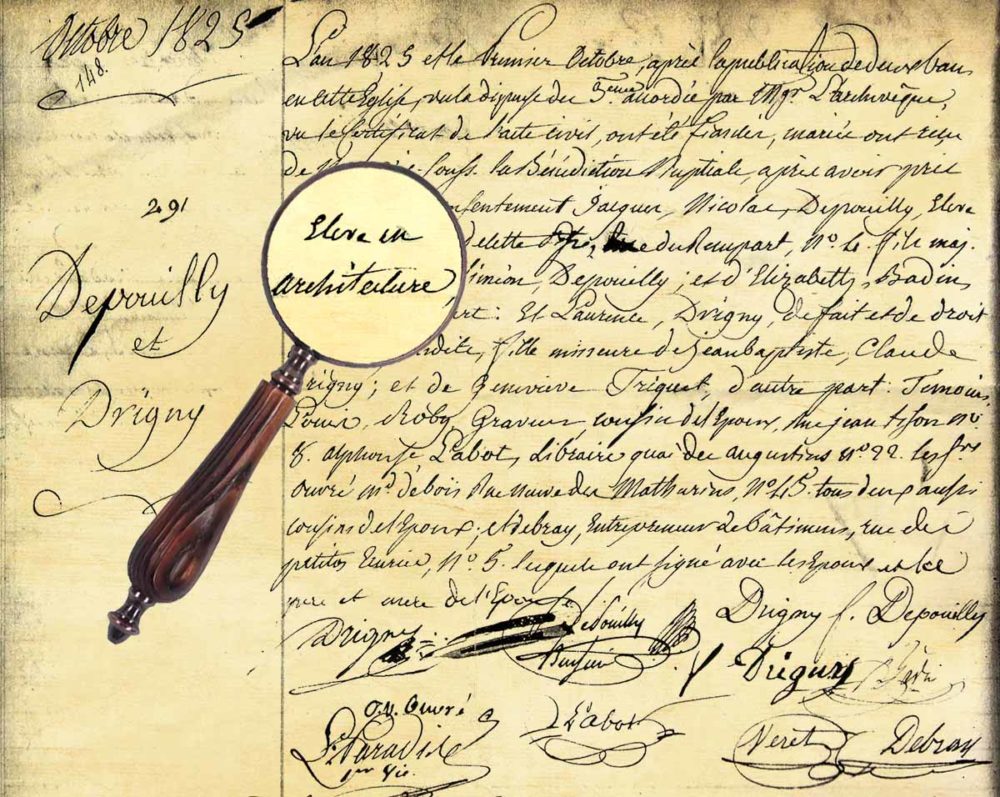 Octobre 1825
148.
291
Depouilly
et
Drigny
L'an 1825 et le Premier Octobre, après la publication de deux bans
en cette Eglise, vu la dispense du 3eme accordée par Mgr. L'archevêque,
vu le Certificat de l'acte civil, ont été fiancés, mariés ont reçu
de la Bénédiction Nuptiale, après avoir pris
Jacques, Nicolas, Depouilly, Eleve
rue du Rempart, No. 4. fils maj.
Simon, Depouilly; et d'Elizabeth, Badin
Et Laurence, Drigny, de fait et de droit
fille mineure de Jean baptiste, Claude
Drigny; et de Genevieve Triquet, d'autre part: Temoins
Louis, Roby Graveur cousin de l'Epoux, rue jean tison no.
8. alphonse Labot, Libraire quai des augustins no. 22.
ouvré md. de bois Rue neuve des Mathurins, No. 45. tous deux aussi
cousins de l'Epoux; et debray, Entrepreneur de bâtimens, rue des
petites Ecuries, No. 5. lesquels ont signé avec les Epoux et les
pere et mere de l'Epouse
Eleve en
architecture
Drigny
Depouilly
Drigny f. Depouilly
Drigny
Badin
Ouvré
Labot
Paradis
1er Vic.
Veret
Debray